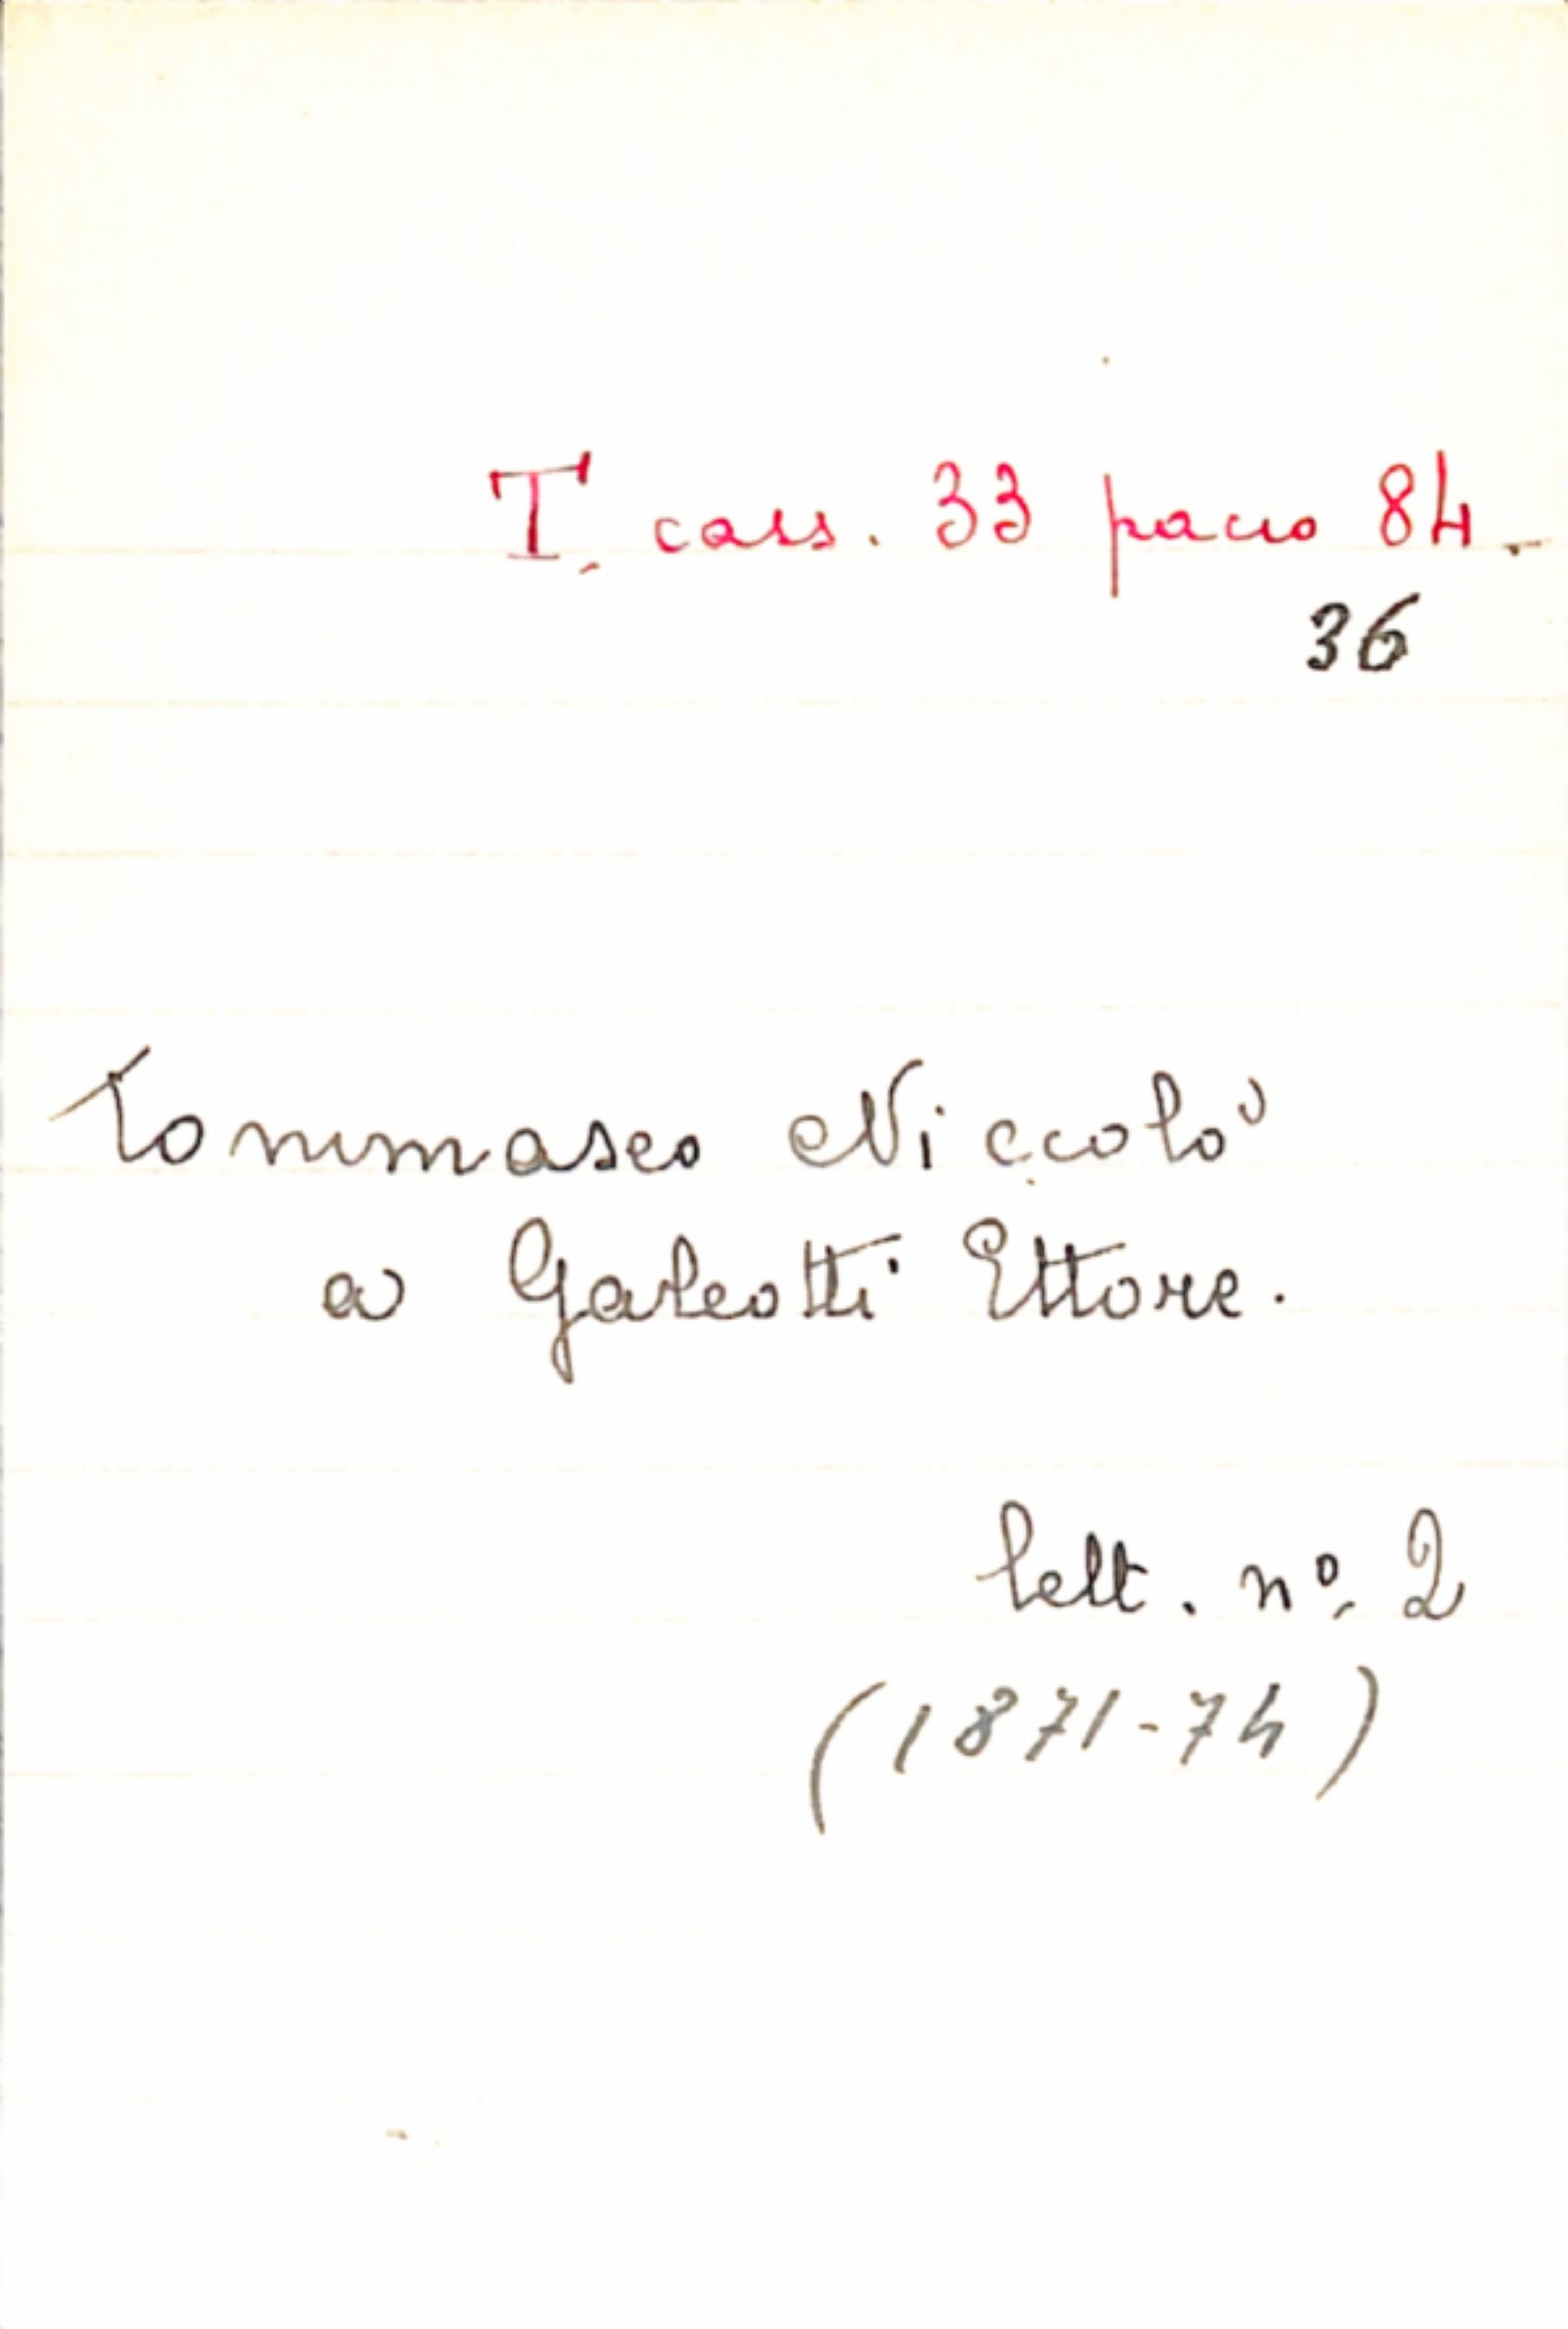 T. cass. 33 pacco 84.
36
Tommaseo Niccolò
a Galeotti Ettore.
lett. nº. 2
(1871-74)